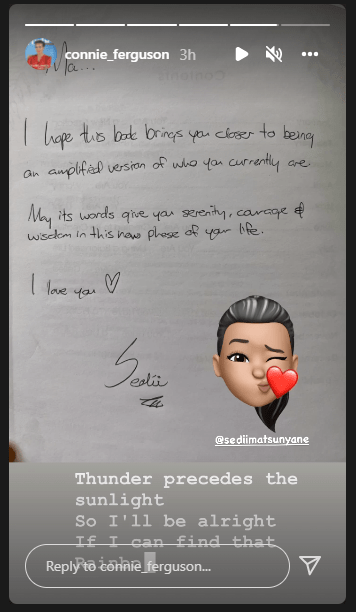 connie_ferguson 3h
Ma...
I hope this book brings you closer to being
an amplified version of who you currently are.
May its words give you serenity, courage &
wisdom in this new phase of your life.
I love you
Sedii
@sediimatsunyane
Thunder precedes the
sunlight
So I'll be alright
If I can find that
Rainbo
Reply to connie_ferguson...